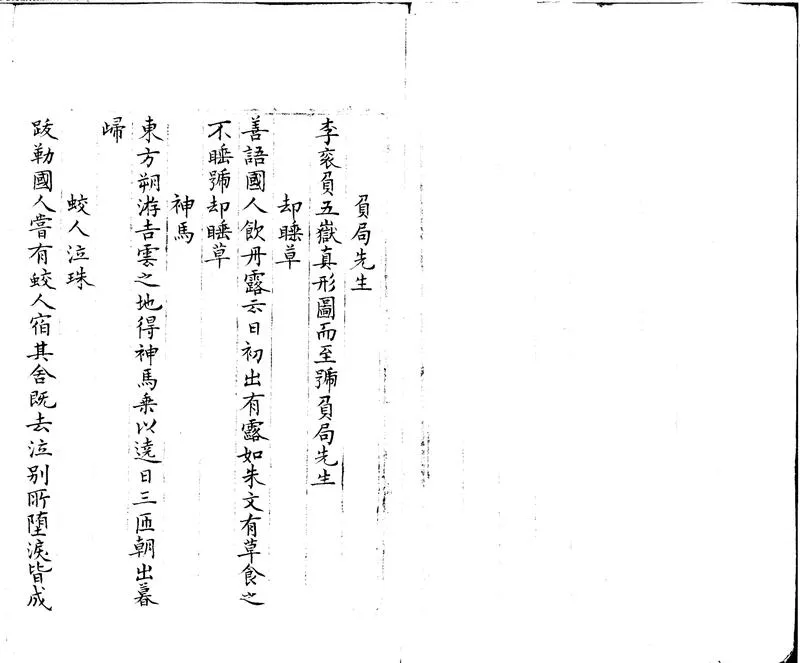 負局先生
李衮負五嶽真形圖而至號負局先生
却睡草
善語國人飲丹露云日初出有露如朱文有草食之
不睡號却睡草
神馬
東方朔游吉雲之地得神馬乗以遶日三匝朝出暮
歸
蛟人泣珠
跋勒國人嘗有蛟人宿其舍既去泣别所墮淚皆成